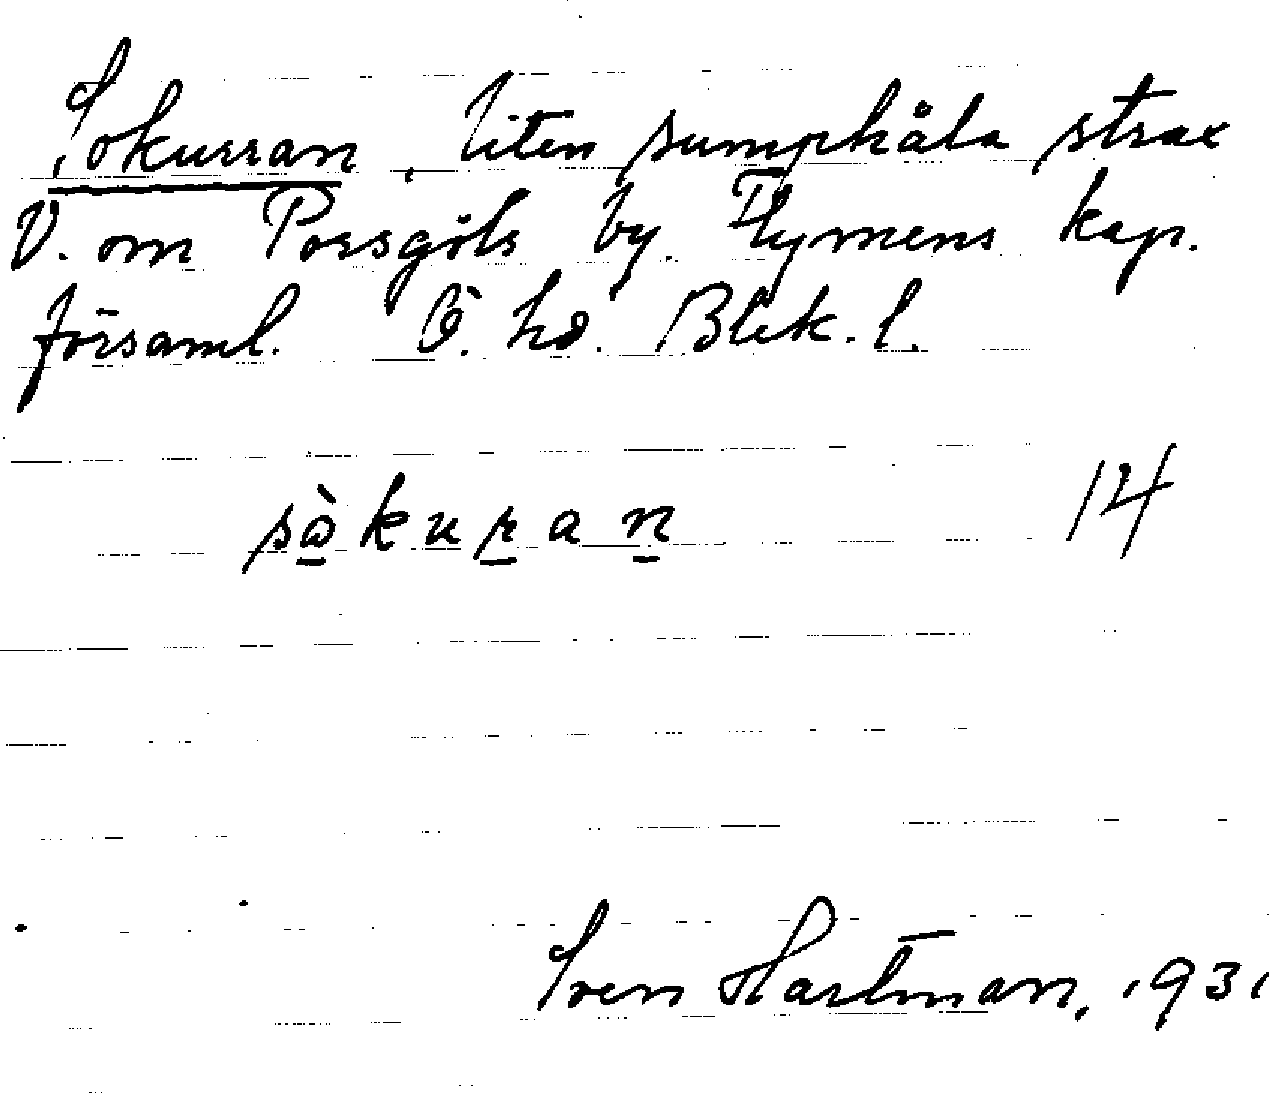 Sokurran, liten sumphåla strax
V. om Porsgöls by. Flymens kap.
församl. Ö. hd. Blek. l.
sòkuran 14
Sven Hartman, 1931